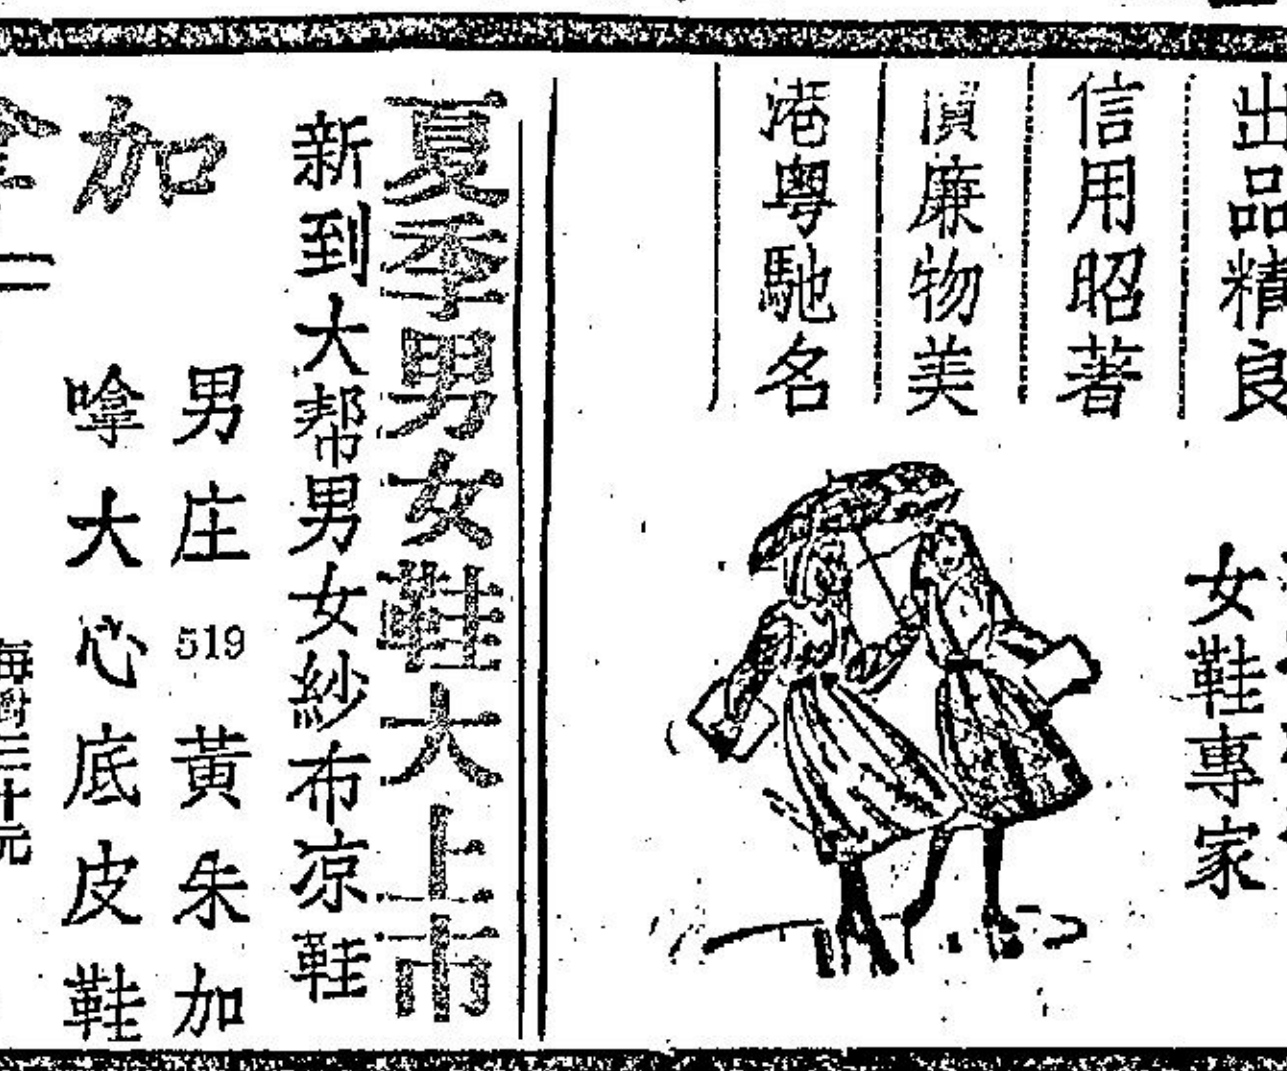 出品精良
信用昭著
價廉物美
港粵馳名
女鞋專家
夏季男女鞋大上市
新到大幇男女紗布凉鞋
加
男庄519黃朱加
嗱大心底皮鞋
每對三十元